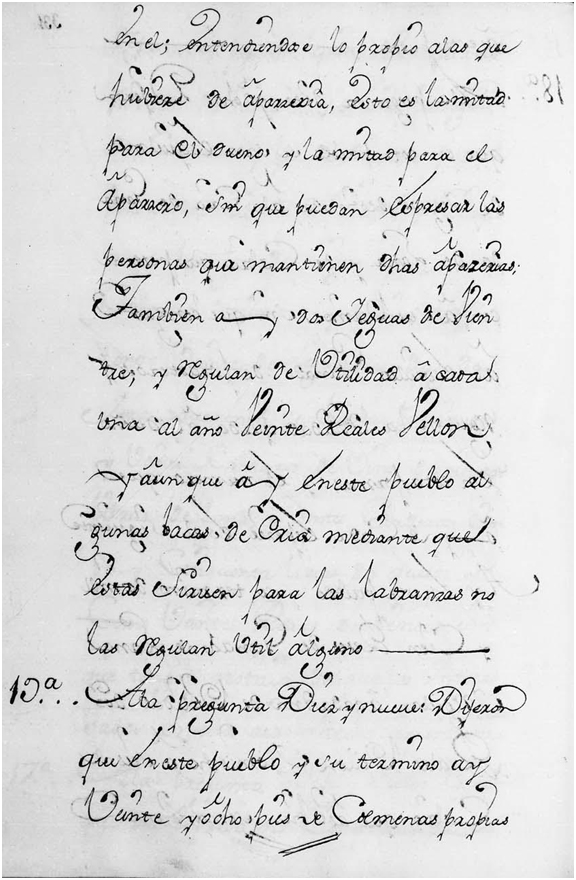 en el; entendiendose lo propio alas que
hubiere de aparzeria, esto es la mitad
para el dueño y la mitad para el
Aparzero, sin que puedan espresar las
personas que mantienen dhas aparzerias.
Tambien ay dos Yeguas de Vien
tre; y regulan de Utilidad â cada
una al año Veinte Reales Vellon
y âunque ây eneste pueblo al
gunas bacas de Cria mediante que
estas Siruen para las labranzas no
las regulan Util alguno
19.ª A la pregunta Diez y nueue: Dijeron
que eneste pueblo y su termino ay
Veinte y ocho pies de Colmenas propias